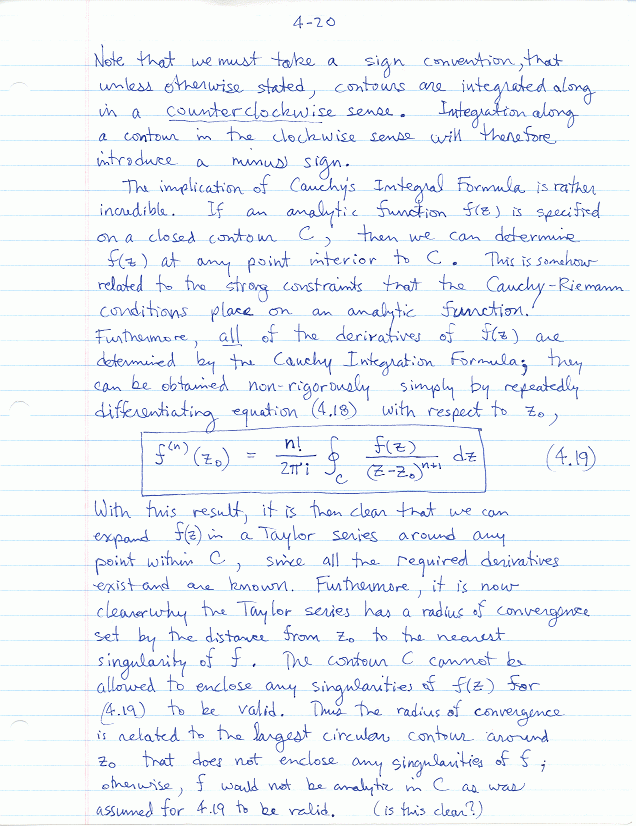 4-20
Note that we must take a sign convention, that
unless otherwise stated, contours are integrated along
in a counterclockwise sense. Integration along
a contour in the clockwise sense will therefore
introduce a minus sign.
The implication of Cauchy's Integral Formula is rather
incredible. If an analytic function f(z) is specified
on a closed contour C, then we can determine
f(z) at any point interior to C. This is somehow
related to the strong constraints that the Cauchy-Riemann
conditions place on an analytic function!
Furthermore, all of the derivatives of f(z) are
determined by the Cauchy Integration Formula; they
can be obtained non-rigorously simply by repeatedly
differentiating equation (4.18) with respect to z₀,
f⁽ⁿ⁾(z₀) = n!/2πi ∮_C f(z)/(z-z₀)ⁿ⁺¹ dz (4.19)
With this result, it is then clear that we can
expand f(z) in a Taylor series around any
point within C, since all the required derivatives
exist and are known. Furthermore, it is now
clearer why the Taylor series has a radius of convergence
set by the distance from z₀ to the nearest
singularity of f. The contour C cannot be
allowed to enclose any singularities of f(z) for
(4.19) to be valid. Thus the radius of convergence
is related to the largest circular contour around
z₀ that does not enclose any singularities of f;
otherwise, f would not be analytic in C as was
assumed for 4.19 to be valid. (is this clear?)